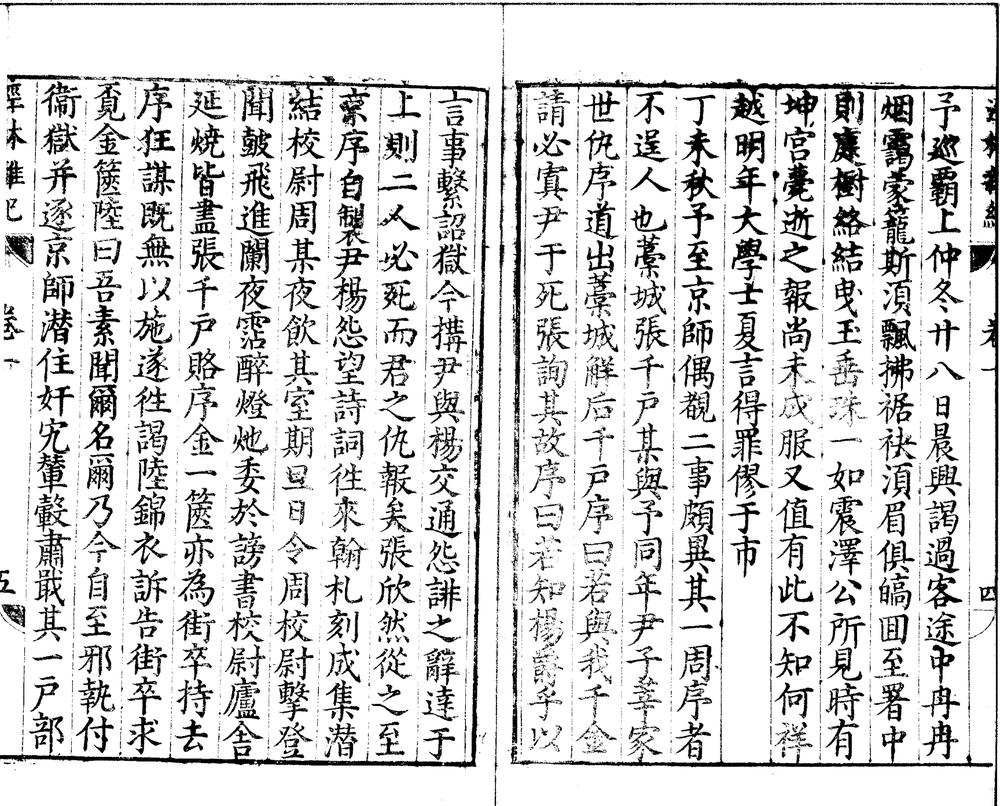 予巡霸上仲冬廿八日晨興謁過客途中冉冉
烟靄蒙籠斯湏飄拂裾袂湏眉俱皜囬至署中
則庭樹絡結曳玉垂珠一如震澤公所見時有
坤宮薨逝之報尚未成服又值有此不知何祥
越明年大學士夏言得罪僇于市
丁未秋予至京師偶覩二事頗異其一周序者
不逞人也藁城張千戸某與予同年尹子莘家
世仇序道出藁城解后千戸序曰若與我千金
請必寘尹于死張詢其故序曰若知楊爵乎以
言事繫詔獄今搆尹與楊交通怨誹之辭達于
上則二人必死而君之仇報矣張欣然從之至
京序自製尹楊怨望詩詞徃來翰札刻成集潜
結校尉周某夜飲其室期旦日令周校尉擊登
聞皷飛進闌夜霑醉燈灺委於謗書校尉廬舎
延燒皆盡張千戸賂序金一篋亦為街卒持去
序狂謀既無以施遂徃謁陸錦衣訴告街卒求
覔金篋陸曰吾素聞爾名爾乃今自至邪執付
衞獄并逐京師潜住奸宄輦轂肅戢其一戸部
卷一
五
四